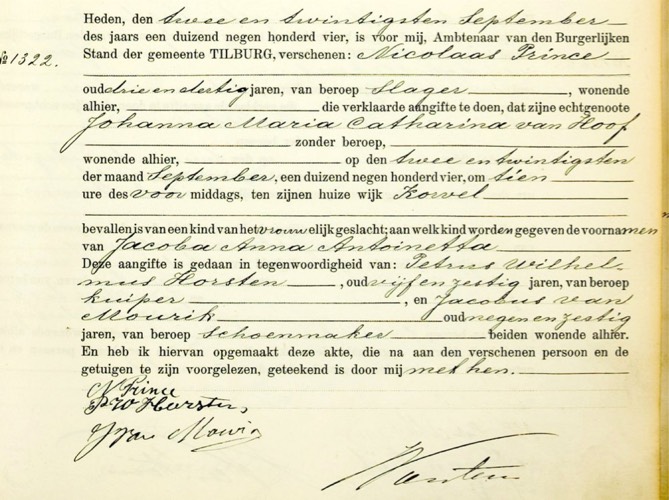 Heden, den twee en twintigsten September
des jaars een duizend negen honderd vier, is voor mij, Ambtenaar van den Burgerlijken
№ 1322. Stand der gemeente TILBURG, verschenen: Nicolaas Prince
oud drie en dertig jaren, van beroep Slager, wonende
alhier, die verklaarde aangifte te doen, dat zijne echtgenoote
Johanna Maria Catharina van Hoof
zonder beroep,
wonende alhier, op den twee en twintigsten
der maand September, een duizend negen honderd vier, om tien
ure des voor middags, ten zijnen huize wijk Korvel
bevallen is van een kind van het vrouwelijk geslacht; aan welk kind worden gegeven de voornamen
van Jacoba Anna Antoinetta
Deze aangifte is gedaan in tegenwoordigheid van: Petrus Wilhel-
mus Horsten, oud vijf en zestig jaren, van beroep
kuiper, en Jacobus van
Mourik oud negen en zestig
jaren, van beroep schoenmaker beiden wonende alhier.
En heb ik hiervan opgemaakt deze akte, die na aan den verschenen persoon en de
getuigen te zijn voorgelezen, geteekend is door mij met hen.
N Prince
P W Horsten
J van Mouri